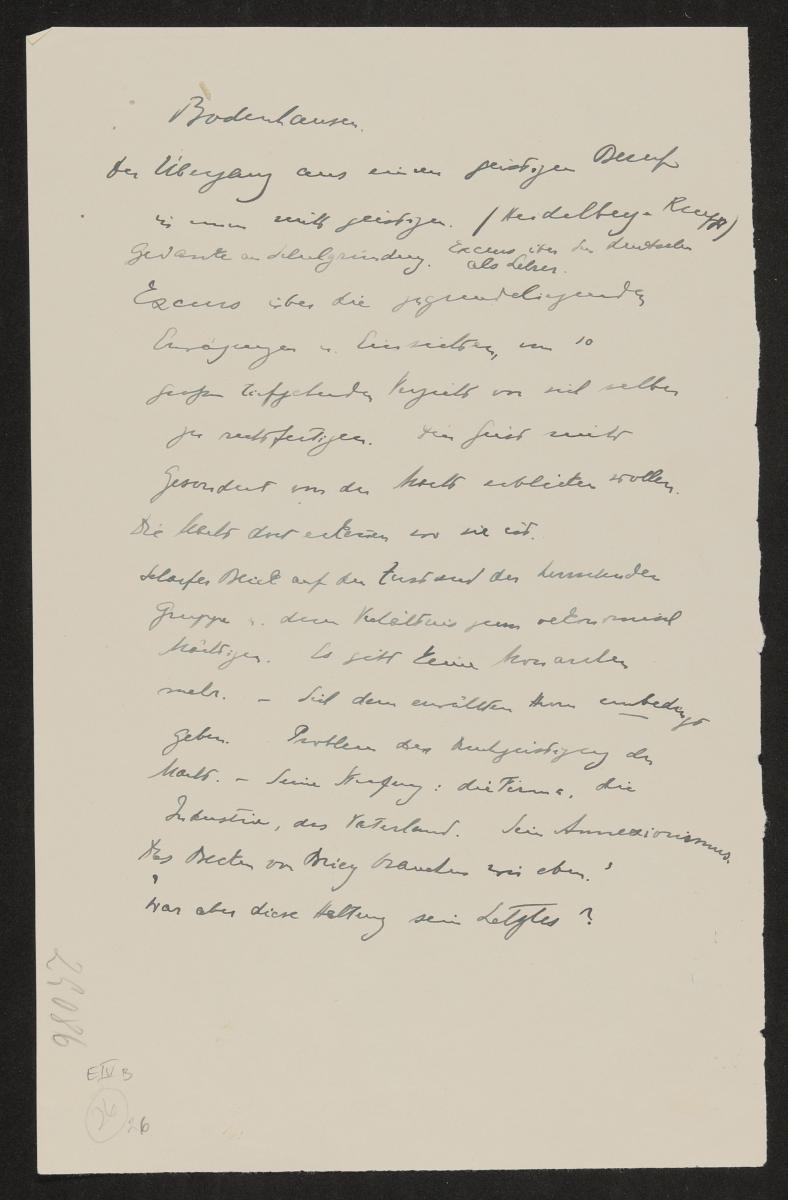 Bodenhausen.
Der Übergang aus einem geistigen Beruf
in einen nicht geistigen. (Heidelberg – Krupp)
Gedanke an Schulgründung. Excurs über den Deutschen
als Lehrer.
Excurs über die zugrundeliegenden
Erwägungen u. Einsichten, um so
großen tiefgehenden Verzicht vor sich selber
zu rechtfertigen. Den Geist nicht
gesondert von der Macht erblicken wollen.
Die Macht dort erkennen wo sie ist.
Scharfer Blick auf den Zustand der herrschenden
Gruppe u. deren Verhältnis zum oekonomisch
Mächtigen. Es gibt keine Monarchen
mehr. – Sich dem erwählten Herrn unbedingt
geben. Problem der Durchgeistigung der
Macht. – Seine Stufung: die Firma, die
Industrie, das Vaterland. Sein Annexionismus.
"Das Becken von Briey brauchen wir eben."
War aber diese Haltung sein Letztes?
29086
E IV B
26
26